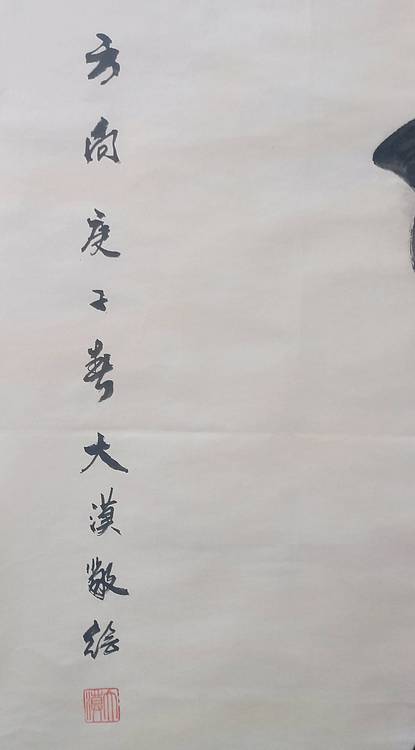 方向庚子春大漠敬绘
大漠